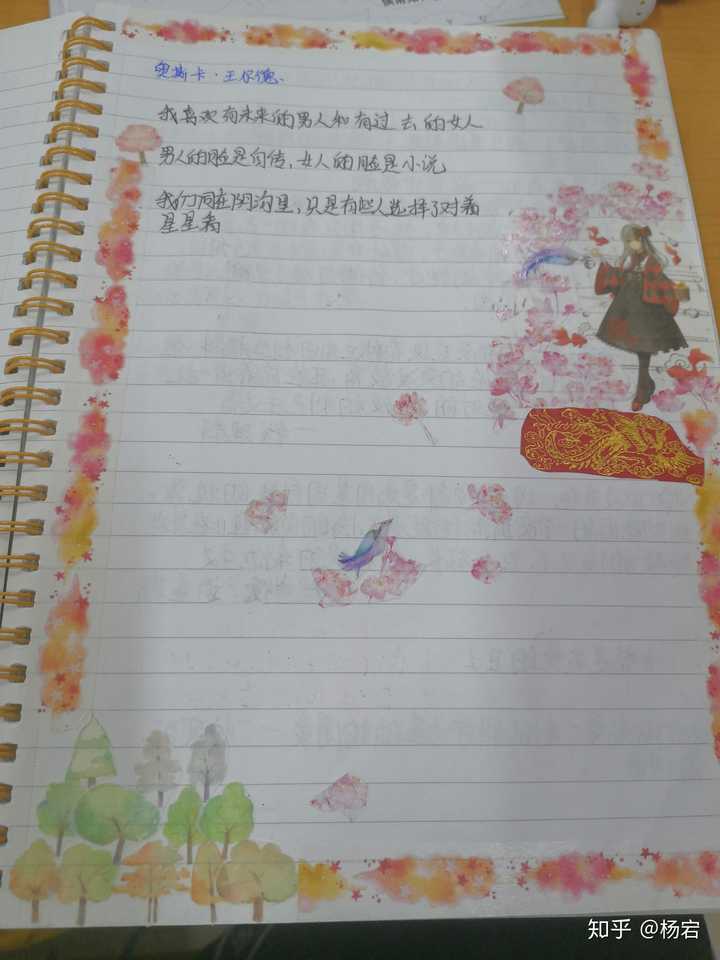 奥斯卡·王尔德.
我喜欢有未来的男人和有过去的女人
男人的脸是自传,女人的脸是小说
我们同在阴沟里,只是有些人选择了对着
星星看
知乎 @杨宕